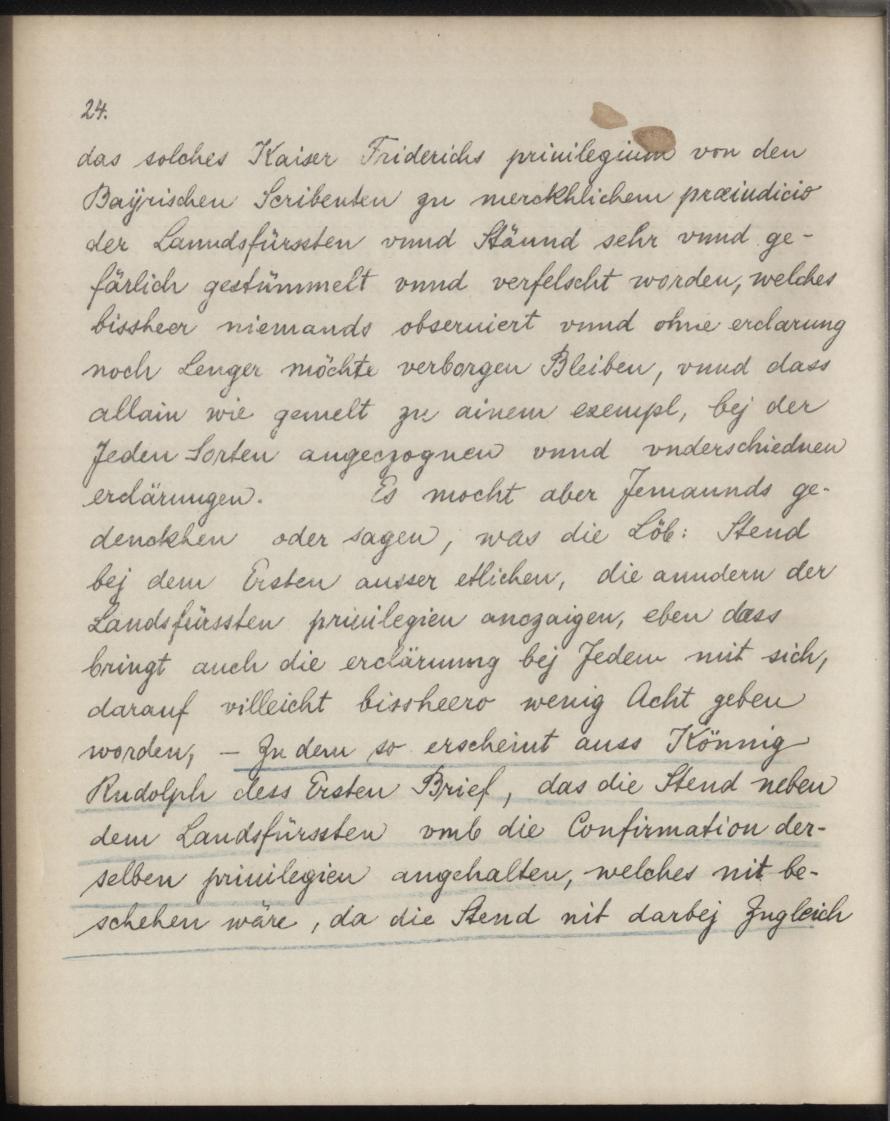 24.
das solches Kaiser Friderichs priuilegium von den
Baÿrischen Scribenten zu merckhlichem præiudicio
der Lanndsfürssten vnnd Stännd sehr vnnd ge-
färlich gestümmelt vnnd verfelscht worden, welches
bissheer niemands obseruiert vnnd ohne erclarung
noch Lenger möchte verborgen Bleiben, vnnd dass
allain wie gemelt zu ainem exempl, bej der
Jeden Sorten angeczognen vnnd vnderschiednen
erclärungen. Es mocht aber Jemannds ge-
denckhen oder sagen, was die Löb: Stend
bej dem Ersten ausser etlichen, die anndern der
Landsfürssten priuilegien anczaigen, eben dass
bringt auch die erclärunng bej Jedem mit sich,
darauf villeicht bissheero wenig Acht geben
worden, – Zu dem so erscheint auss Könnig
Rudolph dess Ersten Brief, das die Stend neben
dem Landsfürssten vmb die Confirmation der-
selben priuilegien angehalten, welches nit be-
schehen wäre, da die Stend nit darbej Zugleich